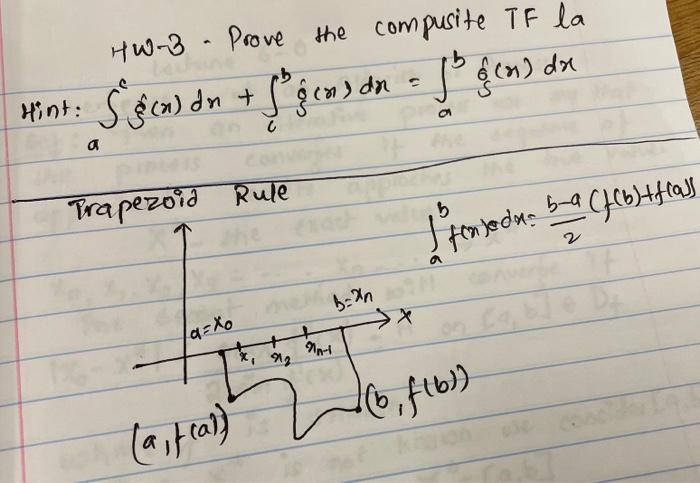 HW-3 - Prove the compusite TF la
Hint: ∫_a^c f(x) dx + ∫_c^b f(x) dx = ∫_a^b f(x) dx
Trapezoid Rule
∫_a^b f(x) dx = b-a/2 (f(b)+f(a))
b=xn
a=x0
x
x1 x2 xn-1
(a, f(a))
(b, f(b))